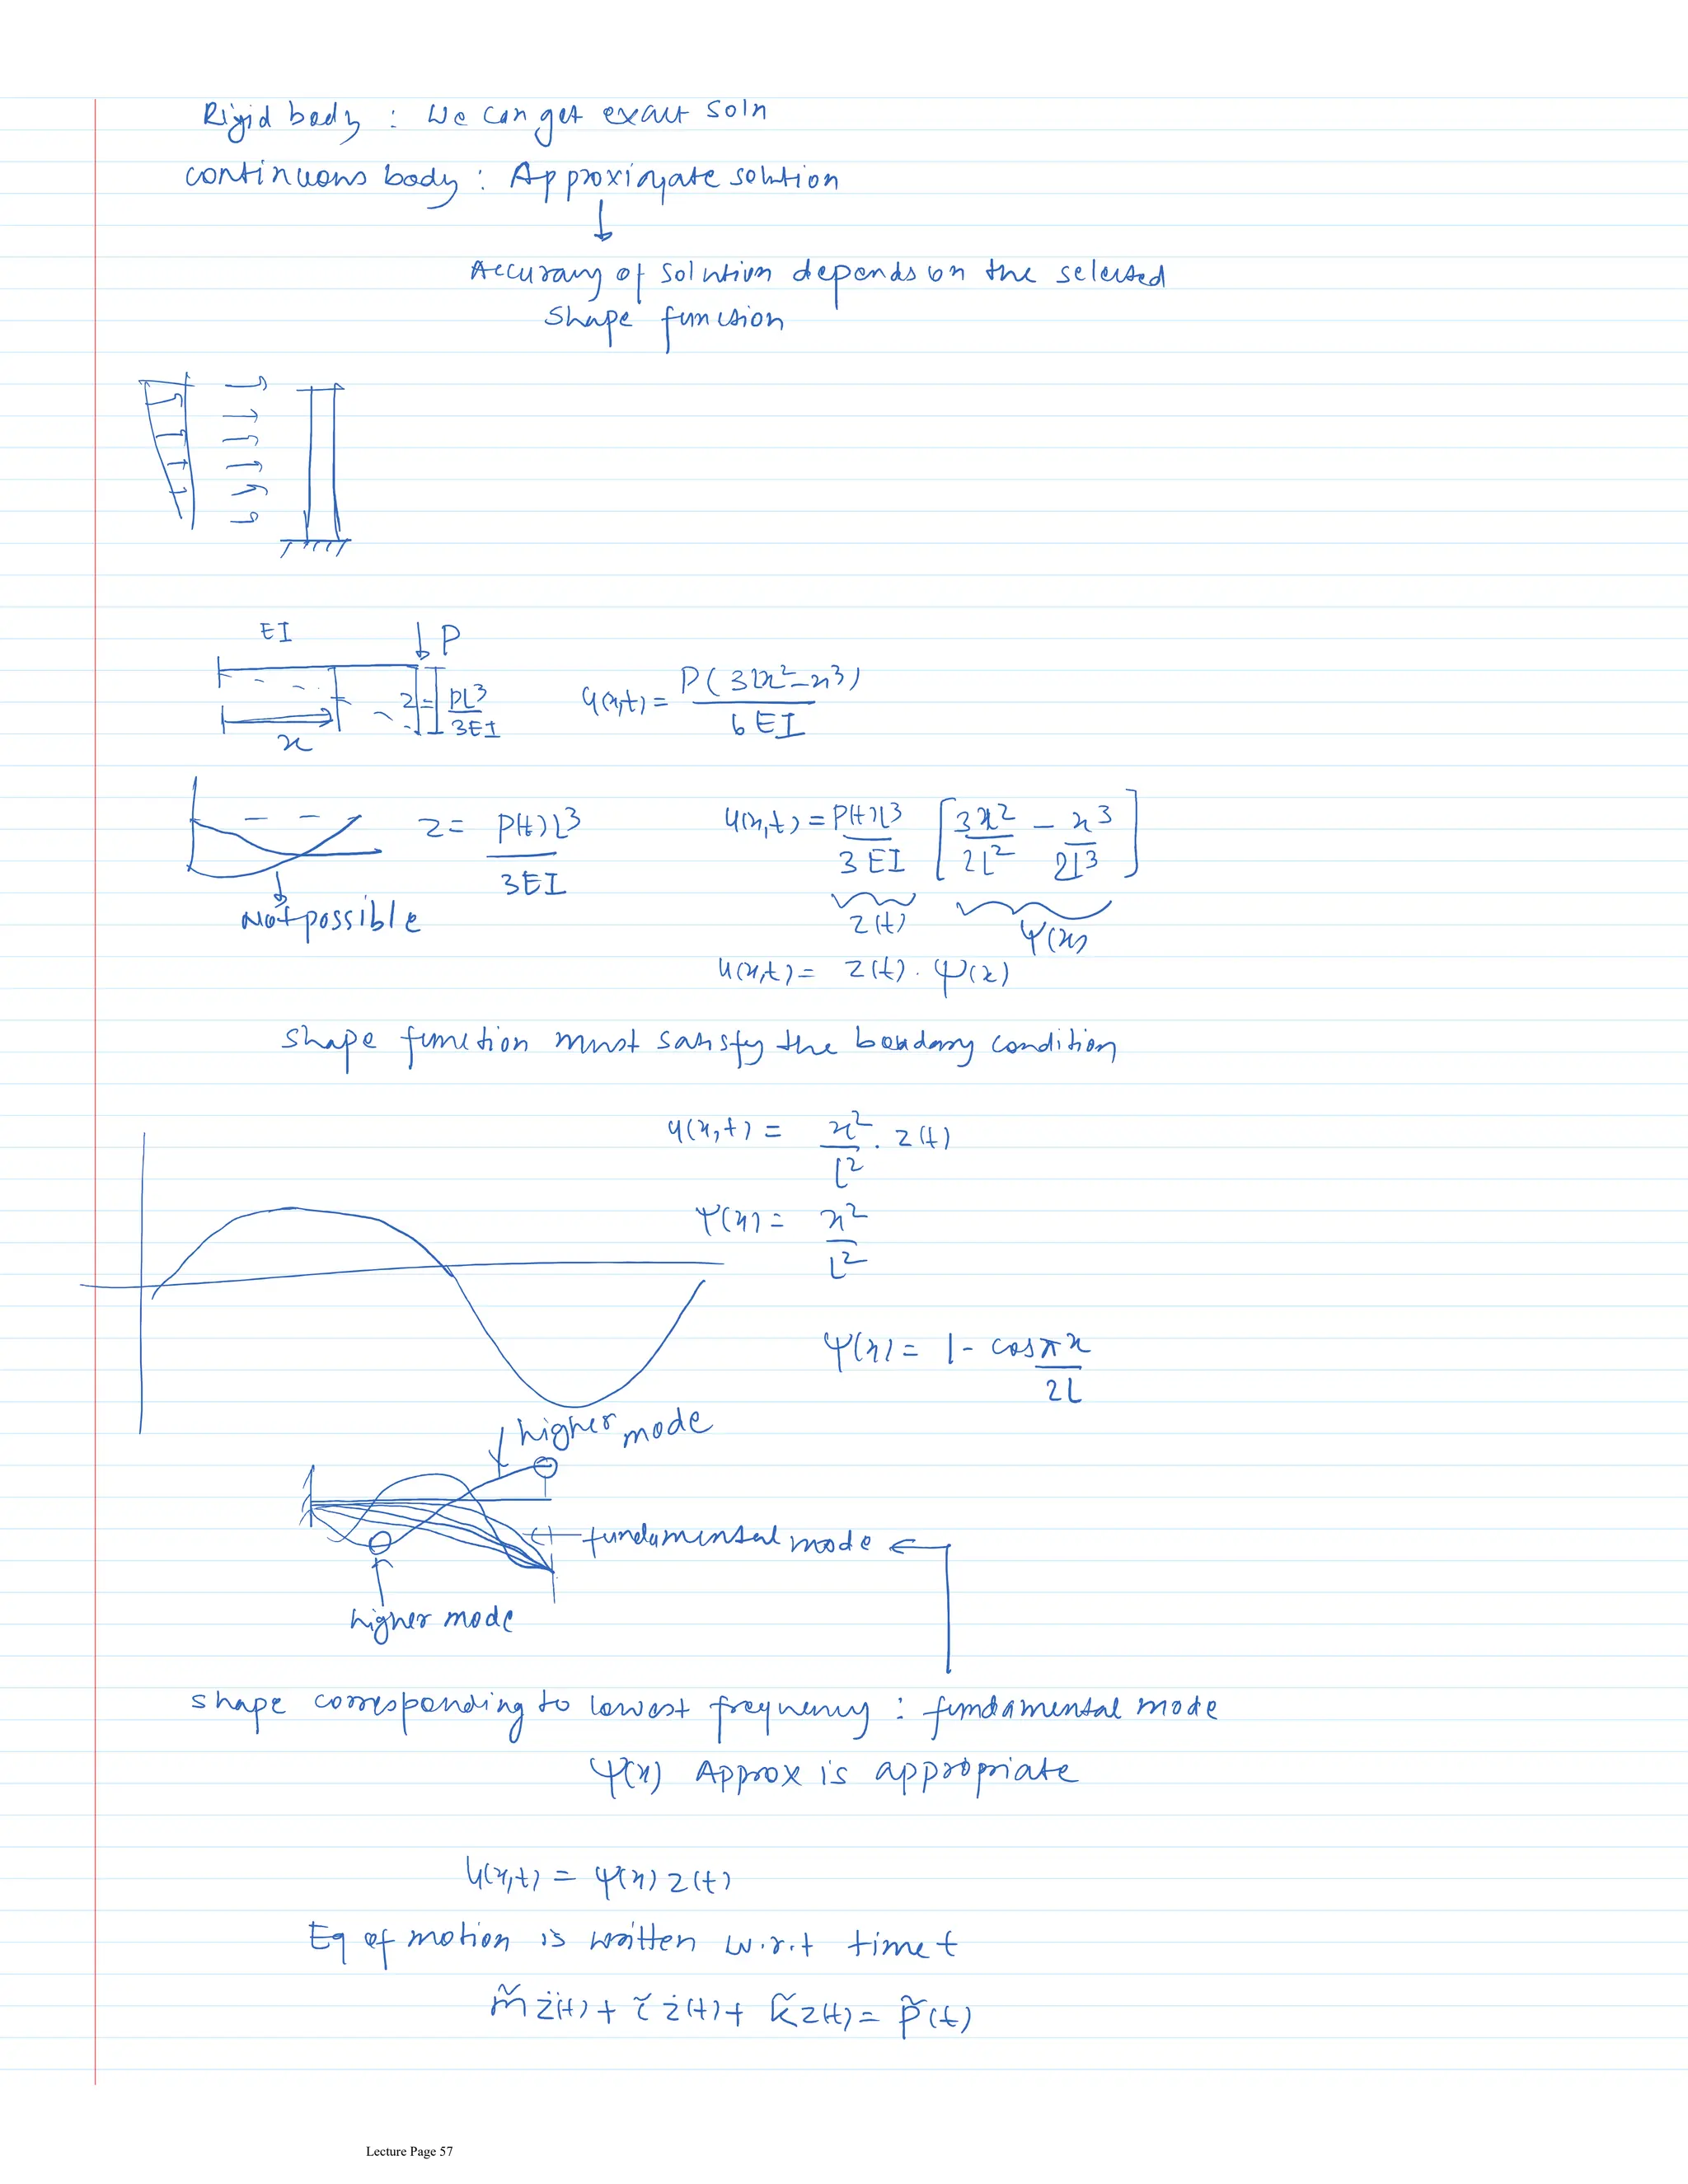 Rigid body : We can get exact soln
continuous body : Approximate solution
↓
Accuracy of solution depends on the selected
shape function
EI
↓ P
z = PL³/3EI
x
u(x,t) = P(3Lx²-x³)/6EI
z = P(t)L³/3EI
Not possible
u(x,t) = P(t)L³/3EI [3x²/2L² - x³/2L³]
z(t) ψ(x)
u(x,t) = z(t) . ψ(x)
shape function must satisfy the boundary condition
u(x,t) = x²/L² . z(t)
ψ(x) = x²/L²
ψ(x) = 1 - cos πx/2L
higher mode
fundamental mode ←
higher mode
shape corresponding to lowest frequency : fundamental mode
ψ(x) Approx is appropriate
u(x,t) = ψ(x) z(t)
Eq of motion is written w.r.t time t
m̃ z̈(t) + c̃ ż(t) + k̃ z(t) = p̃(t)
Lecture Page 57